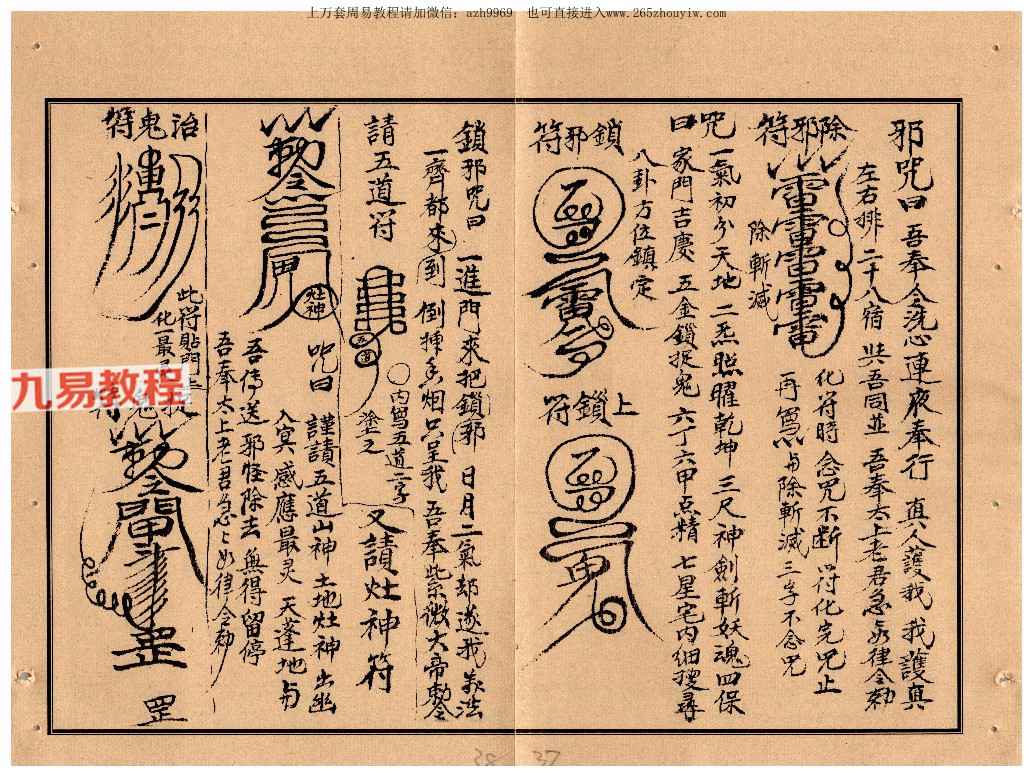 上万套周易教程请加微信：azh9969 也可直接进入www.265zhouyiw.com
邪咒曰 吾奉令洗心連夜奉行 真人護我 我護真
左右排 二十八宿 與吾同並 吾奉太上老君急急律令勅
除邪符
除斬滅
化符時念咒不断 符化完咒止
再寫 除斬滅 三字不念咒
咒曰 一氣初分天地 二炁照曜乾坤 三尺神劍斬妖魂 四保
家門吉慶 五金鎖捉鬼 六丁六甲点精 七星宅内細搜尋
八卦方位鎮定
鎖邪符
上鎖符
鎖邪咒曰 一進門來把鎖 日月二氣却遂我 法
一齊都來到 倒 香烟只呈我 吾奉紫微大帝勅令
請五道符
五道
内寫五道二字
塗之
又請灶神符
灶神
咒曰 謹請五道山神土地灶神出幽
入冥感應最灵 天蓬地
吾傳送邪怪除去 無得留停
吾奉太上老君急急如律令勅
治鬼符
此符貼門上
化一最
九易教程
符
罡